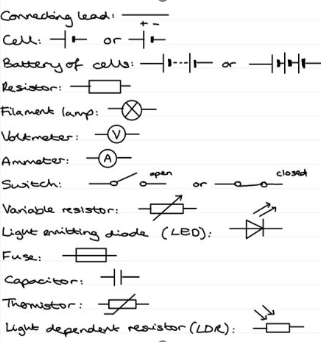 Connecting lead:
+ -
Cell: or
Battery of cells: or
Resistor:
Filament lamp:
Voltmeter: V
Ammeter: A
Switch: open or closed
Variable resistor:
Light emitting diode (LED):
Fuse:
Capacitor:
Thermistor:
Light dependent resistor (LDR):